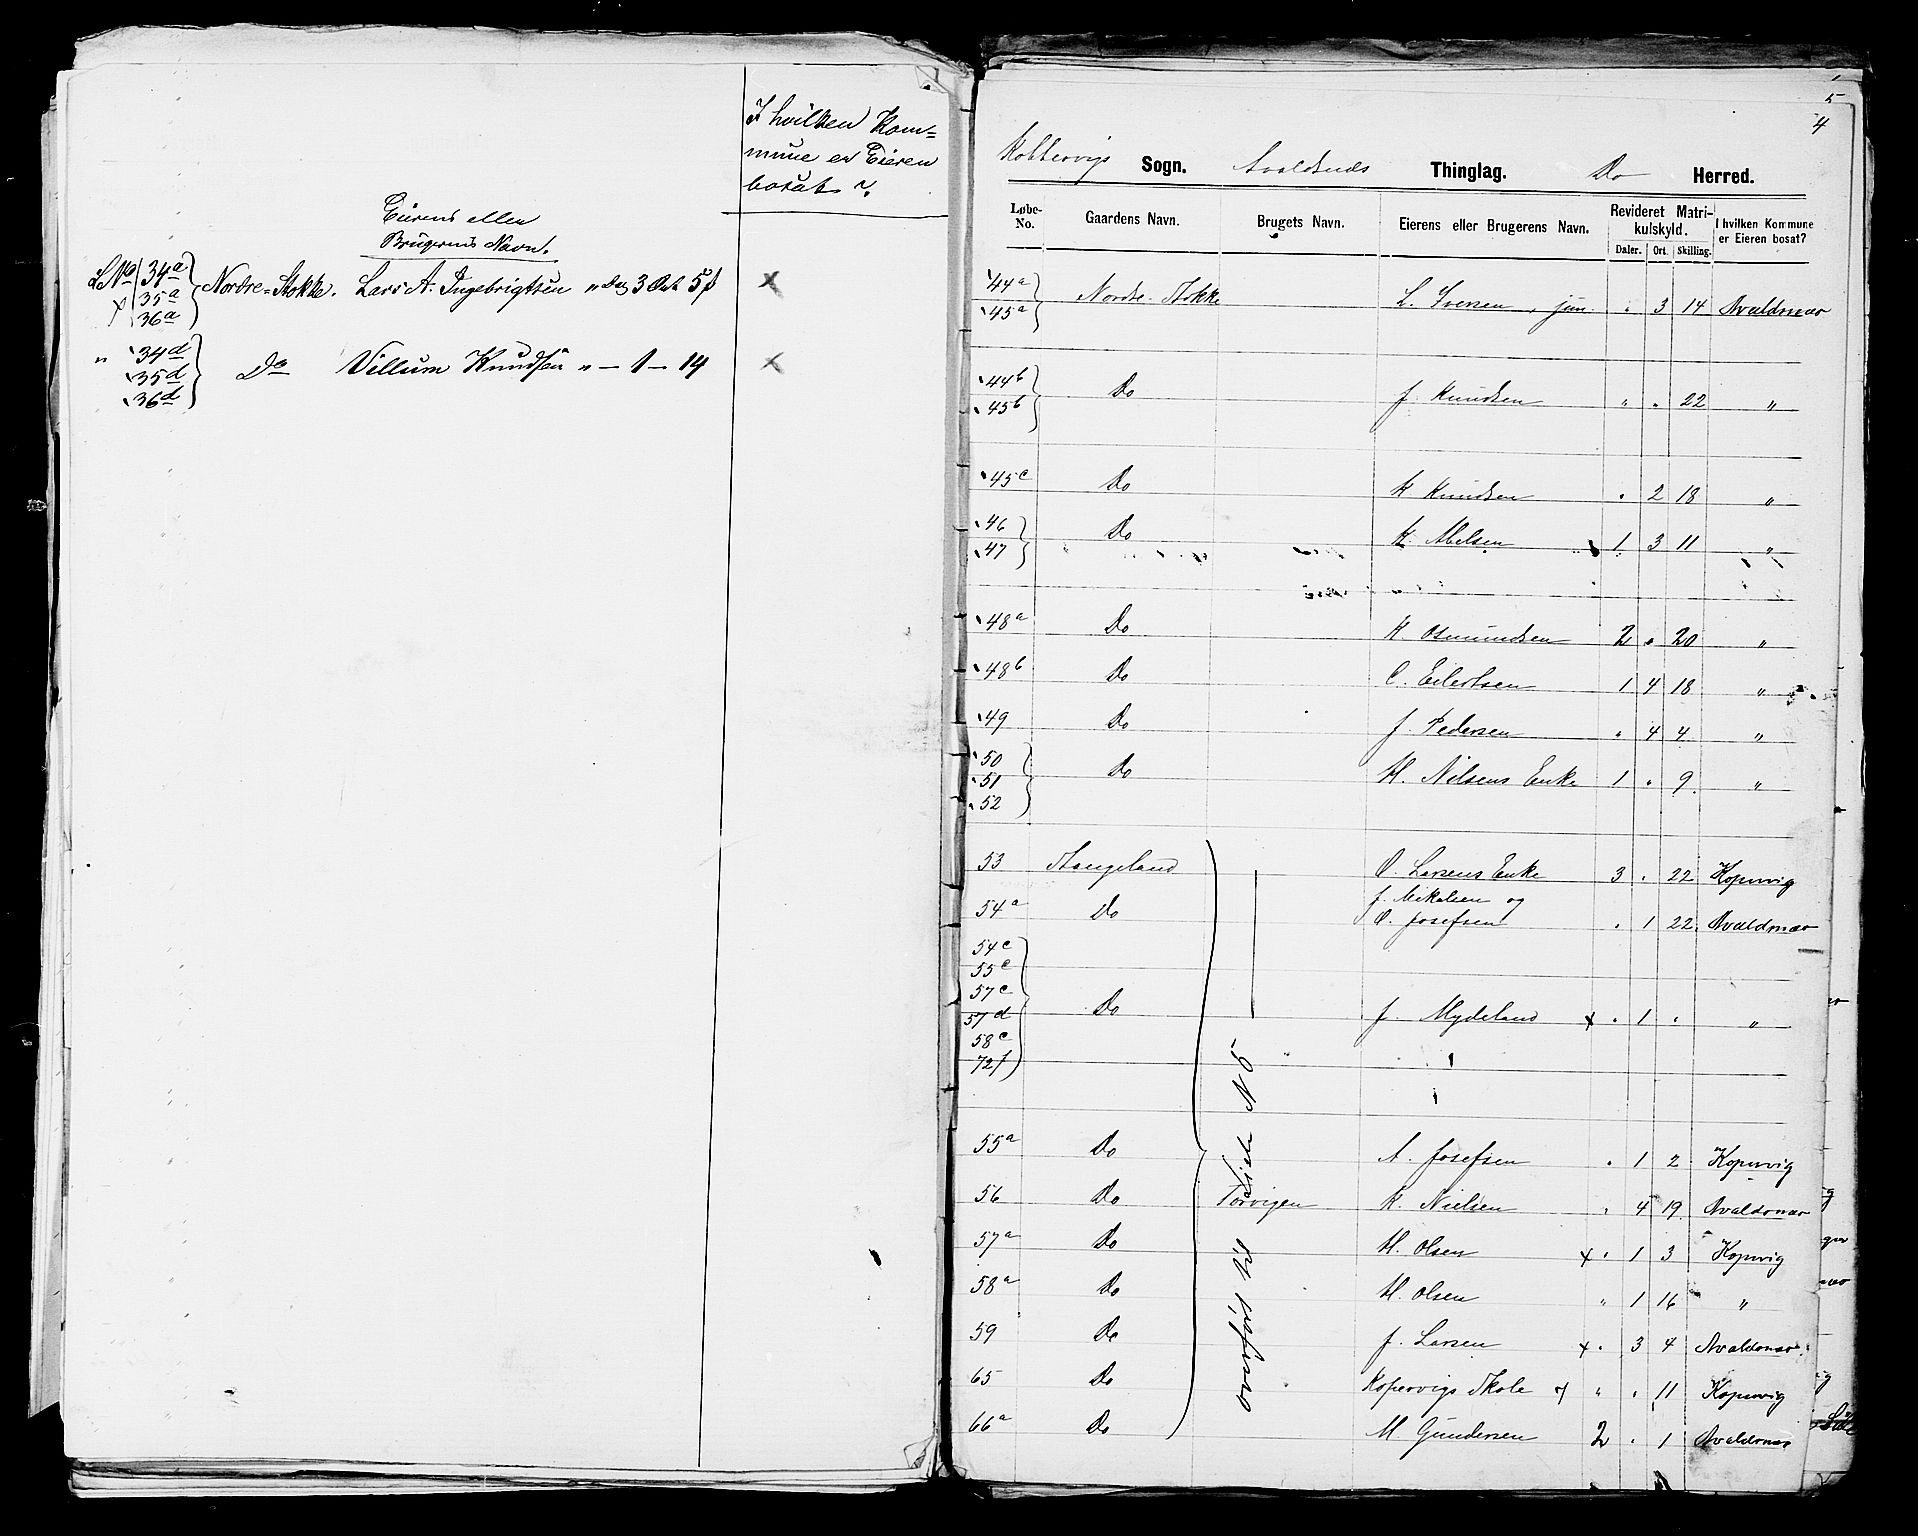 I hvilken Kom=
mune er Eieren
bosat?
Eierens eller
Brugerens Navn.
LNo 34a 35a 36a Nordre=Stokke. Lars A. Ingebrigtsen " Dal 3 Ort 5 ſ x
" 34d 35d 36d Do Villum Knudsen " — 1 — 14 x
5
4
Kobbervigs Sogn. Avaldsnds Thinglag. Do Herred.
Løbe-No. Gaardens Navn. Brugets Navn. Eierens eller Brugerens Navn. Revideret Matrikulskyld. I hvilken Kommune er Eieren bosat?
Daler. Ort. Skilling.
44a 45a Nordre Stokke L. Iversen, jun. " 3 14 Avaldsnæs
44b 45b Do J. Knudsen " " 22 "
45c Do K Knudsen " 2 18 "
46 47 Do K. Abelsen 1 3 11 "
48a Do K. Osmundsen 2 " 20 "
48b Do C. Eilertsen 1 4 18 "
49 Do J. Pedersen " 4 4 "
50 51 52 Do H. Nilsens Enke 1 " 9 "
53 Stangeland O. Larsens Enke 3 " 22 Kopervig
54a Do J. Mikalsen og
O. Josefsen " 1 22 Avaldsnæs
54c 55c 57c 57d 58c 72f Do J. Mydeland x " 1 " "
55a Do A. Josefsen " 1 2 Kopervig
56 Do Torvigen K. Nielsen " 4 19 Avaldsnæs
57a Do H. Olsen x " 1 3 Kopervig
58a Do H. Olsen " 1 16 "
59 Do J. Larsen x " 3 4 Avaldsnæs
65 Do Kopervigs Skole x " " 11 Kopervig
66a Do M Gundersen 2 " 1 Avaldsnæs
Overført til Liste N 5